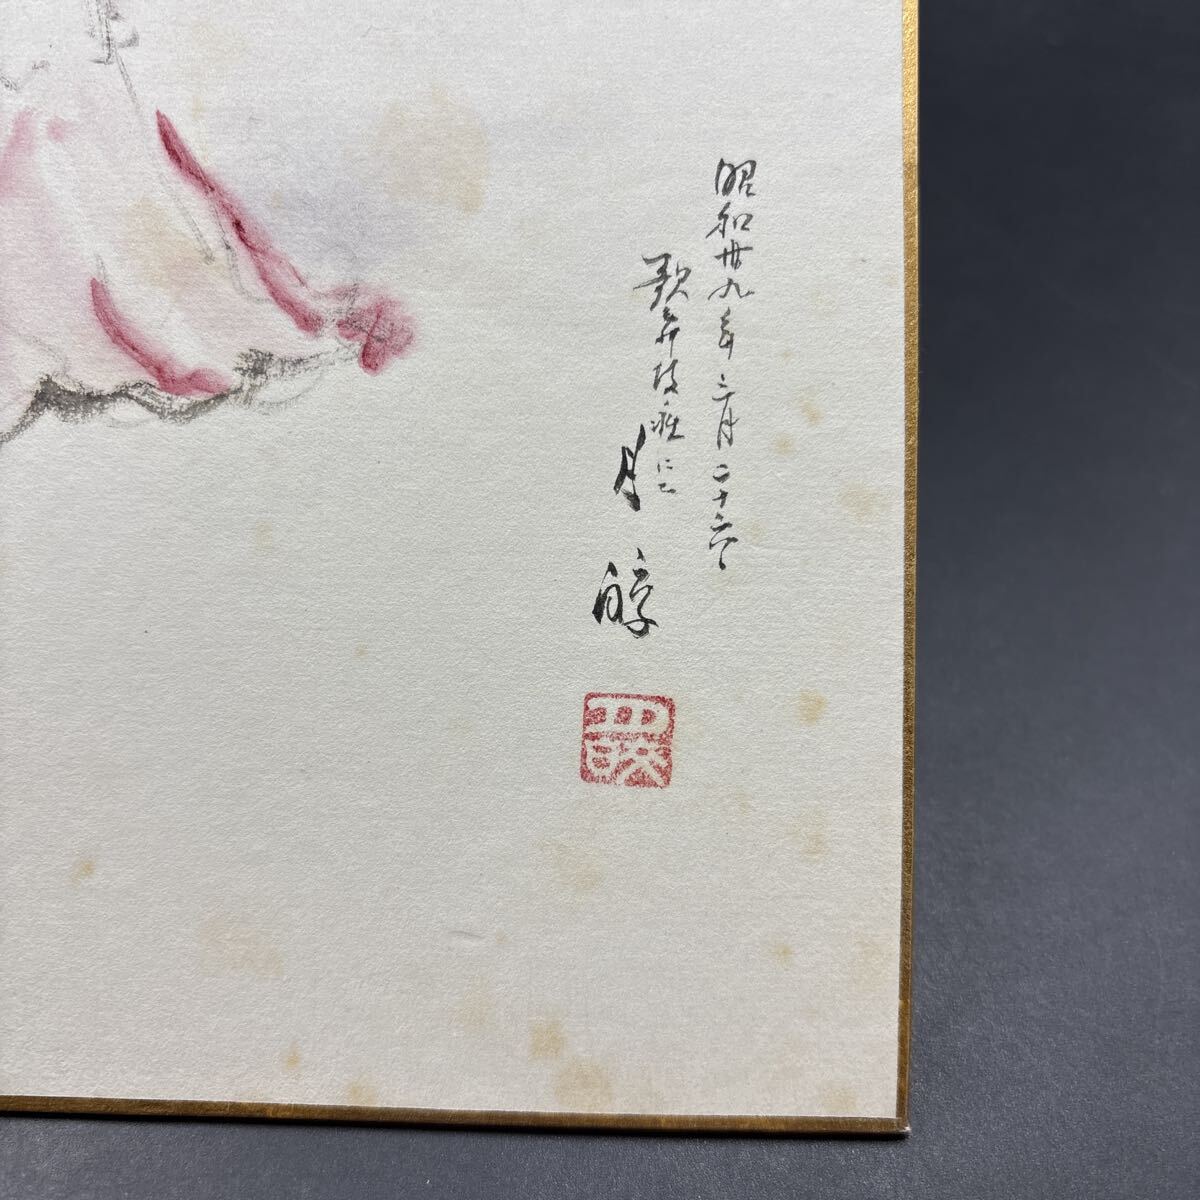 昭和卅九年三月二十六日
歌舞伎座にて
月